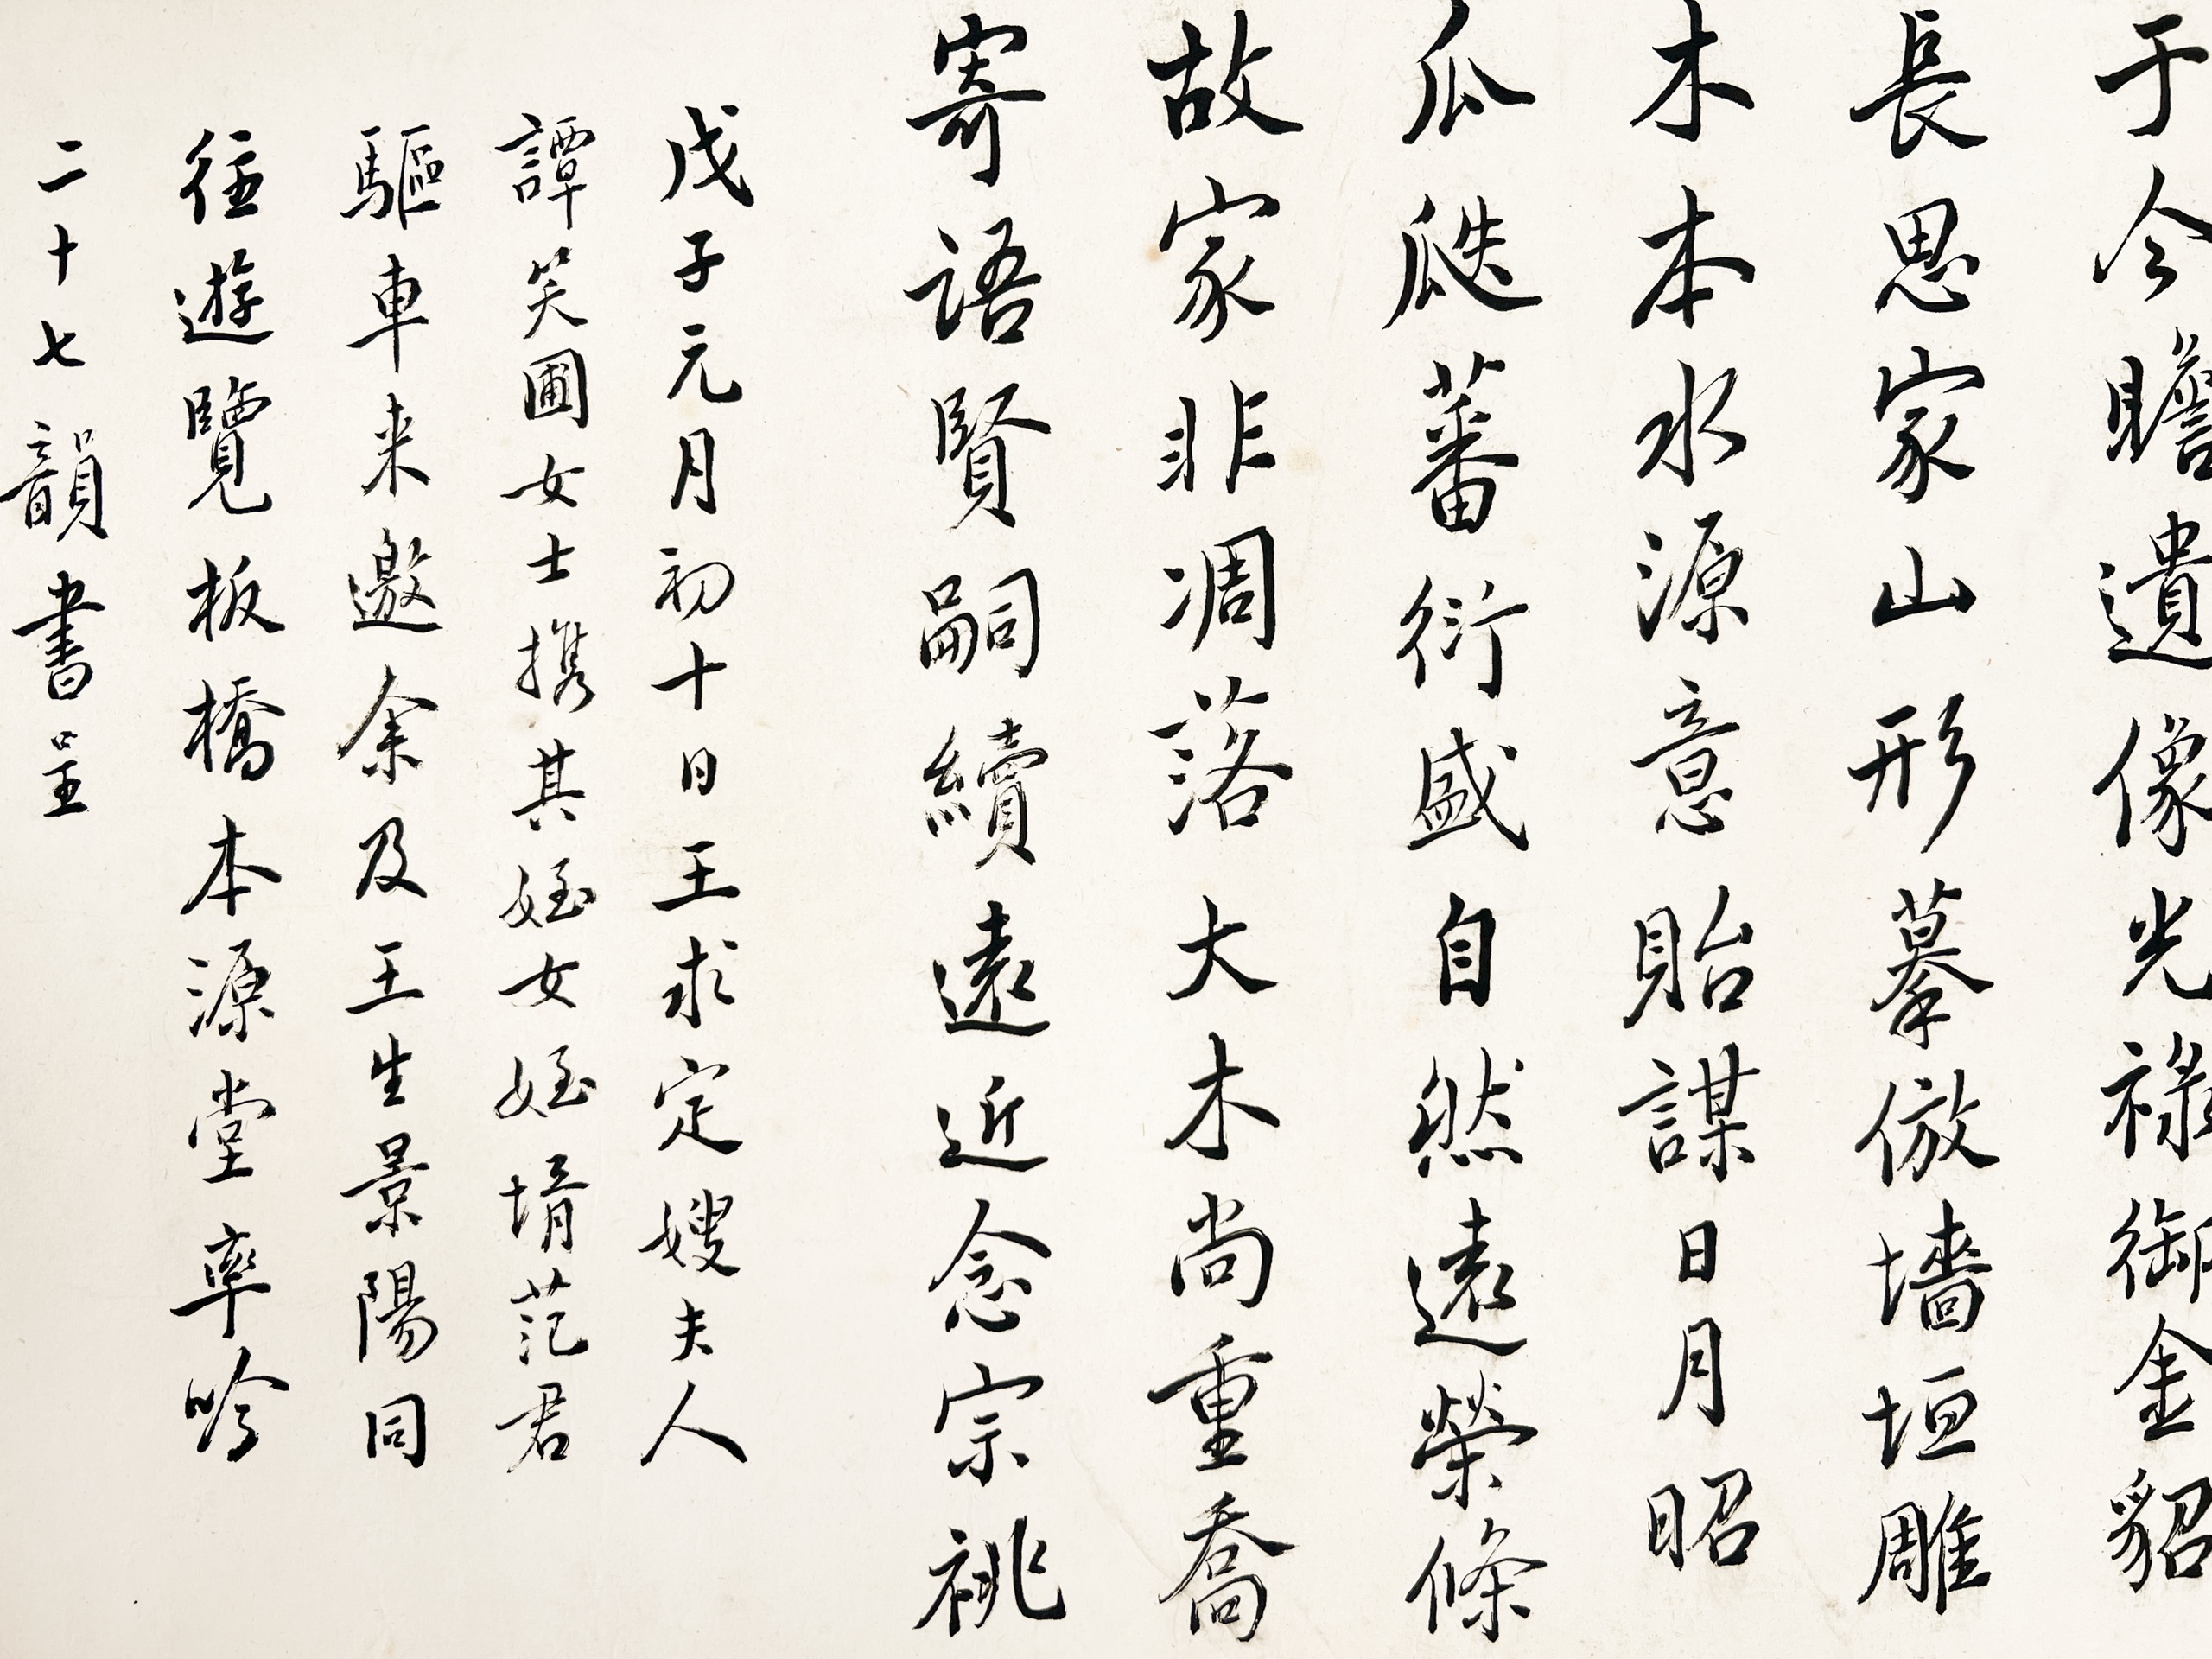 于今瞻遺像光祿御金貂
長思家山形摹倣墻垣雕
木本水源意貽謀日月昭
瓜瓞蕃衍盛自然遠榮條
故家非凋落大木尚重喬
寄語賢嗣續遠近念宗祧
戊子元月初十日王求定嫂夫人
譚笑圃女士携其姪女姪壻范君
驅車来邀余及王生景陽同
往遊覽板橋本源堂率吟
二十七韻書呈